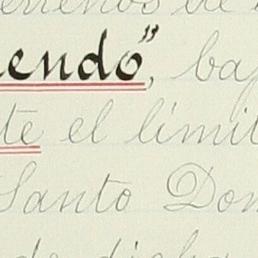 endo", ba
te el límit
Santo Dom
de dicha